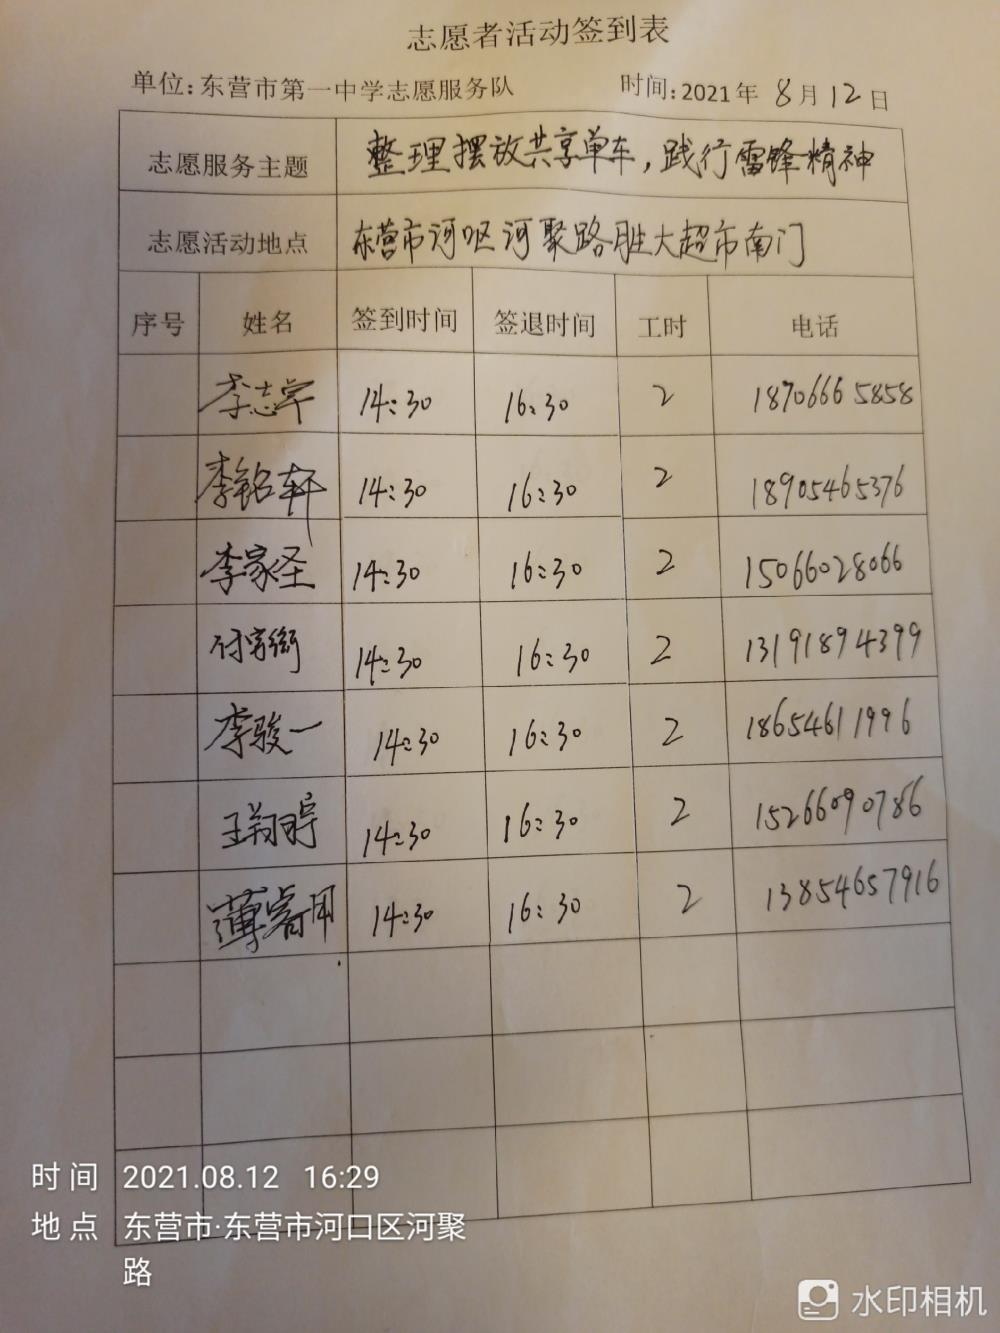 志愿者活动签到表
单位：东营市第一中学志愿服务队 时间：2021年 8月12日
志愿服务主题 整理摆放共享单车，践行雷锋精神
志愿活动地点 东营市河区河聚路胜大超市南门
序号 姓名 签到时间 签退时间 工时 电话
李志宇 14:30 16:30 2 18706665858
李铭轩 14:30 16:30 2 18905465376
李家圣 14:30 16:30 2 15066028066
付宇衡 14:30 16:30 2 13191894399
李骏一 14:30 16:30 2 18654611996
王翔 14:30 16:30 2 15266090786
薄睿用 14:30 16:30 2 13854657916
时间 2021.08.12 16:29
地点 东营市·东营市河口区河聚
路
水印相机